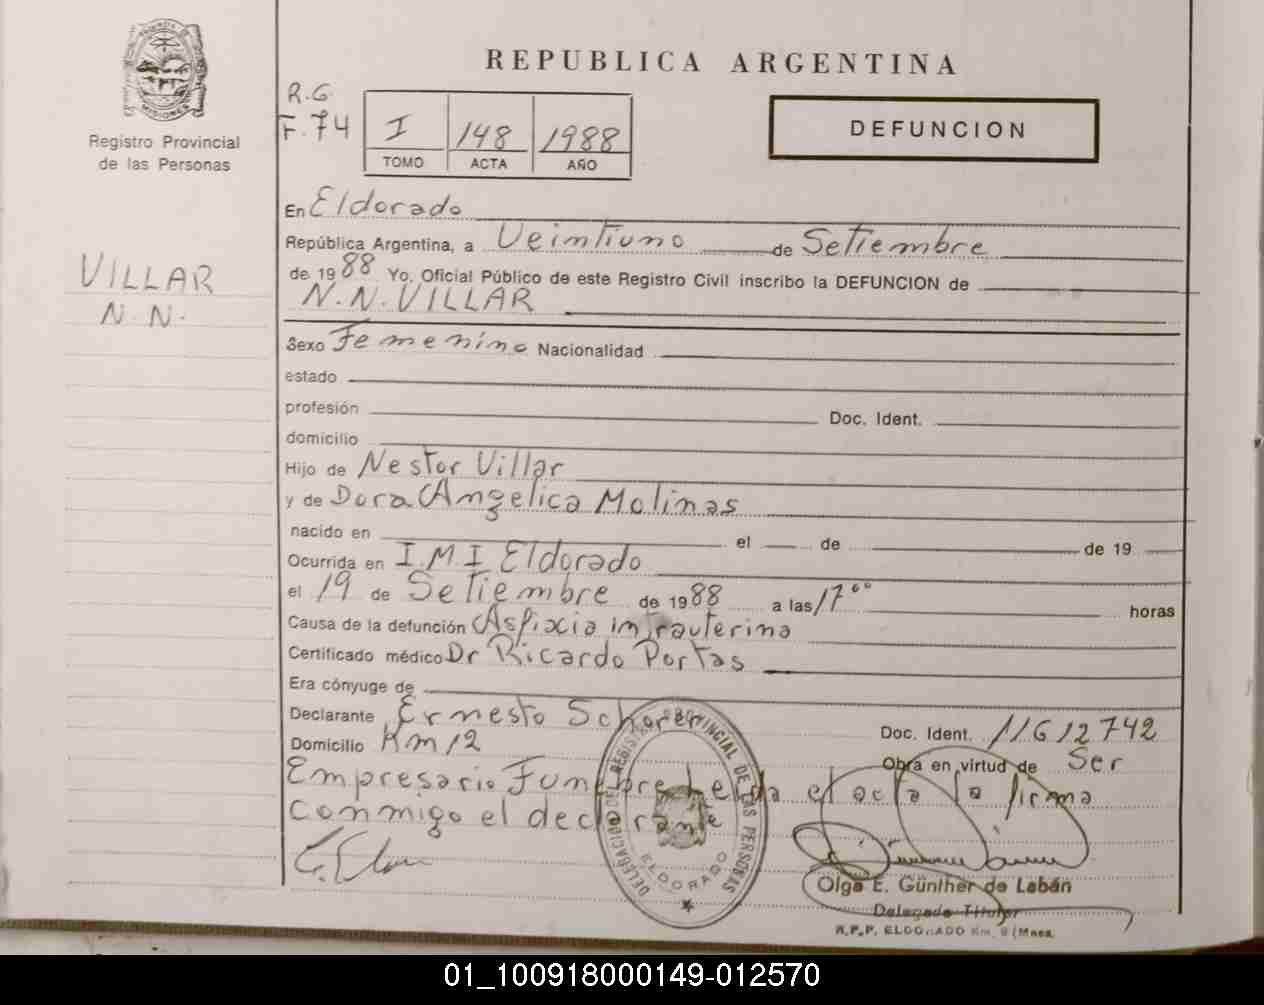 REPUBLICA ARGENTINA
PROVINCIA DE
MISIONES
Registro Provincial
de las Personas
R.G.
F.74
I 148 1988
TOMO ACTA AÑO
DEFUNCION
VILLAR
N. N.
En Eldorado
República Argentina, a Veintiuno de Setiembre
de 1988 Yo, Oficial Público de este Registro Civil inscribo la DEFUNCION de
N. N. VILLAR
Sexo Femenino Nacionalidad
estado
profesión Doc. Ident.
domicilio
Hijo de Nestor Villar
y de Dora Angelica Molinas
nacido en el de de 19
Ocurrida en I.M.I Eldorado
el 19 de Setiembre de 1988 a las 17°° horas
Causa de la defunción Asfixia intrauterina
Certificado médico Dr Ricardo Portas
Era cónyuge de
Declarante Ernesto Scharer Doc. Ident. 11612742
Domicilio Km 12 Obra en virtud de Ser
Empresario Funebre Leida el acta la firma
conmigo el declarante
DELEGACION DEL REGISTRO PROVINCIAL DE LAS PERSONAS
ELDORADO
Olga E. Günther de Labán
Delegada Titular
R.P.P. ELDORADO Km. 9 (Mnes.
01_100918000149-012570